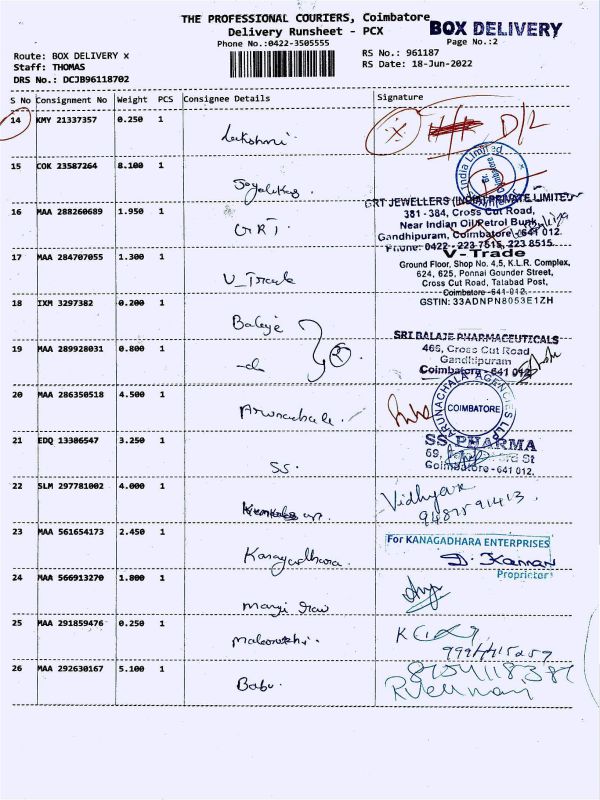 THE PROFESSIONAL COURIERS, Coimbatore
BOX DELIVERY
Delivery Runsheet - PCX
Phone No.:0422-3505555
Page No.:2
Route: BOX DELIVERY x
RS No.: 961187
Staff: THOMAS
RS Date: 18-Jun-2022
DRS No.: DCJB96118702
S No Consignment No Weight PCS Consignee Details Signature
14 KMY 21337357 0.250 1 Lakshmi. D/L
15 COK 23587264 8.100 1
India Limited
Coimbatore
16 MAA 288260689 1.950 1 GRT
GRT JEWELLERS (INDIA) PRIVATE LIMITED
381 - 384, Cross Cut Road,
Near Indian Oil Petrol Bunk,
Gandhipuram, Coimbatore - 641 012.
Phone: 0422 - 223 7515, 223 8515
17 MAA 284707055 1.300 1 V_Trade
V-Trade
Ground Floor, Shop No. 4,5, K.L.R. Complex,
624, 625, Ponnai Gounder Street,
Cross Cut Road, Talabad Post,
Coimbatore -641-012.
GSTIN: 33ADNPN8053E1ZH
18 IXM 3297382 0.200 1 Balaje
19 MAA 289928031 0.800 1 -do 2
SRI BALAJE PHARMACEUTICALS
466, Cross Cut Road,
Gandhipuram
Coimbatore - 641 012
20 MAA 286350518 4.500 1 Arunachala.
ARUNACHALA AGENCIES LLP
COIMBATORE
21 EDQ 13386547 3.250 1 SS.
SS PHARMA
69, 3rd St
Coimbatore - 641 012.
22 SLM 297781002 4.000 1
Vidhya
9487591413.
23 MAA 561654173 2.450 1 Kanagadhara.
For KANAGADHARA ENTERPRISES
D. Kannan
Proprietor
24 MAA 566913270 1.800 1
25 MAA 291859476 0.250 1
26 MAA 292630167 5.100 1 Babu.
8754118387